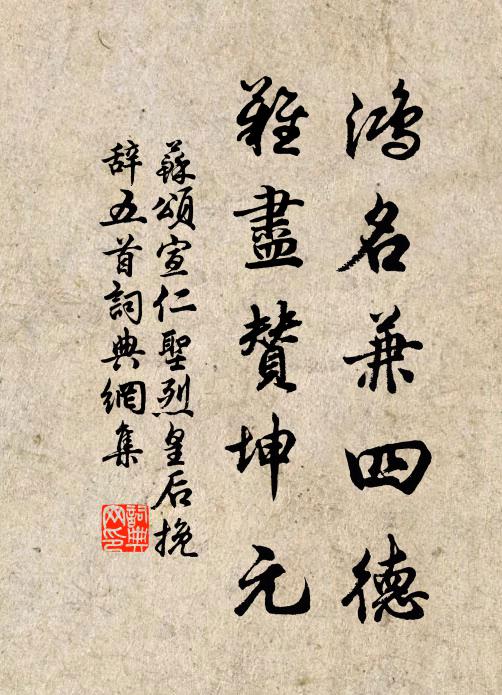 鴻名兼四德
難盡贊坤元
蘇頌宣仁聖烈皇后挽
辭五首詞典網集
詞典网印